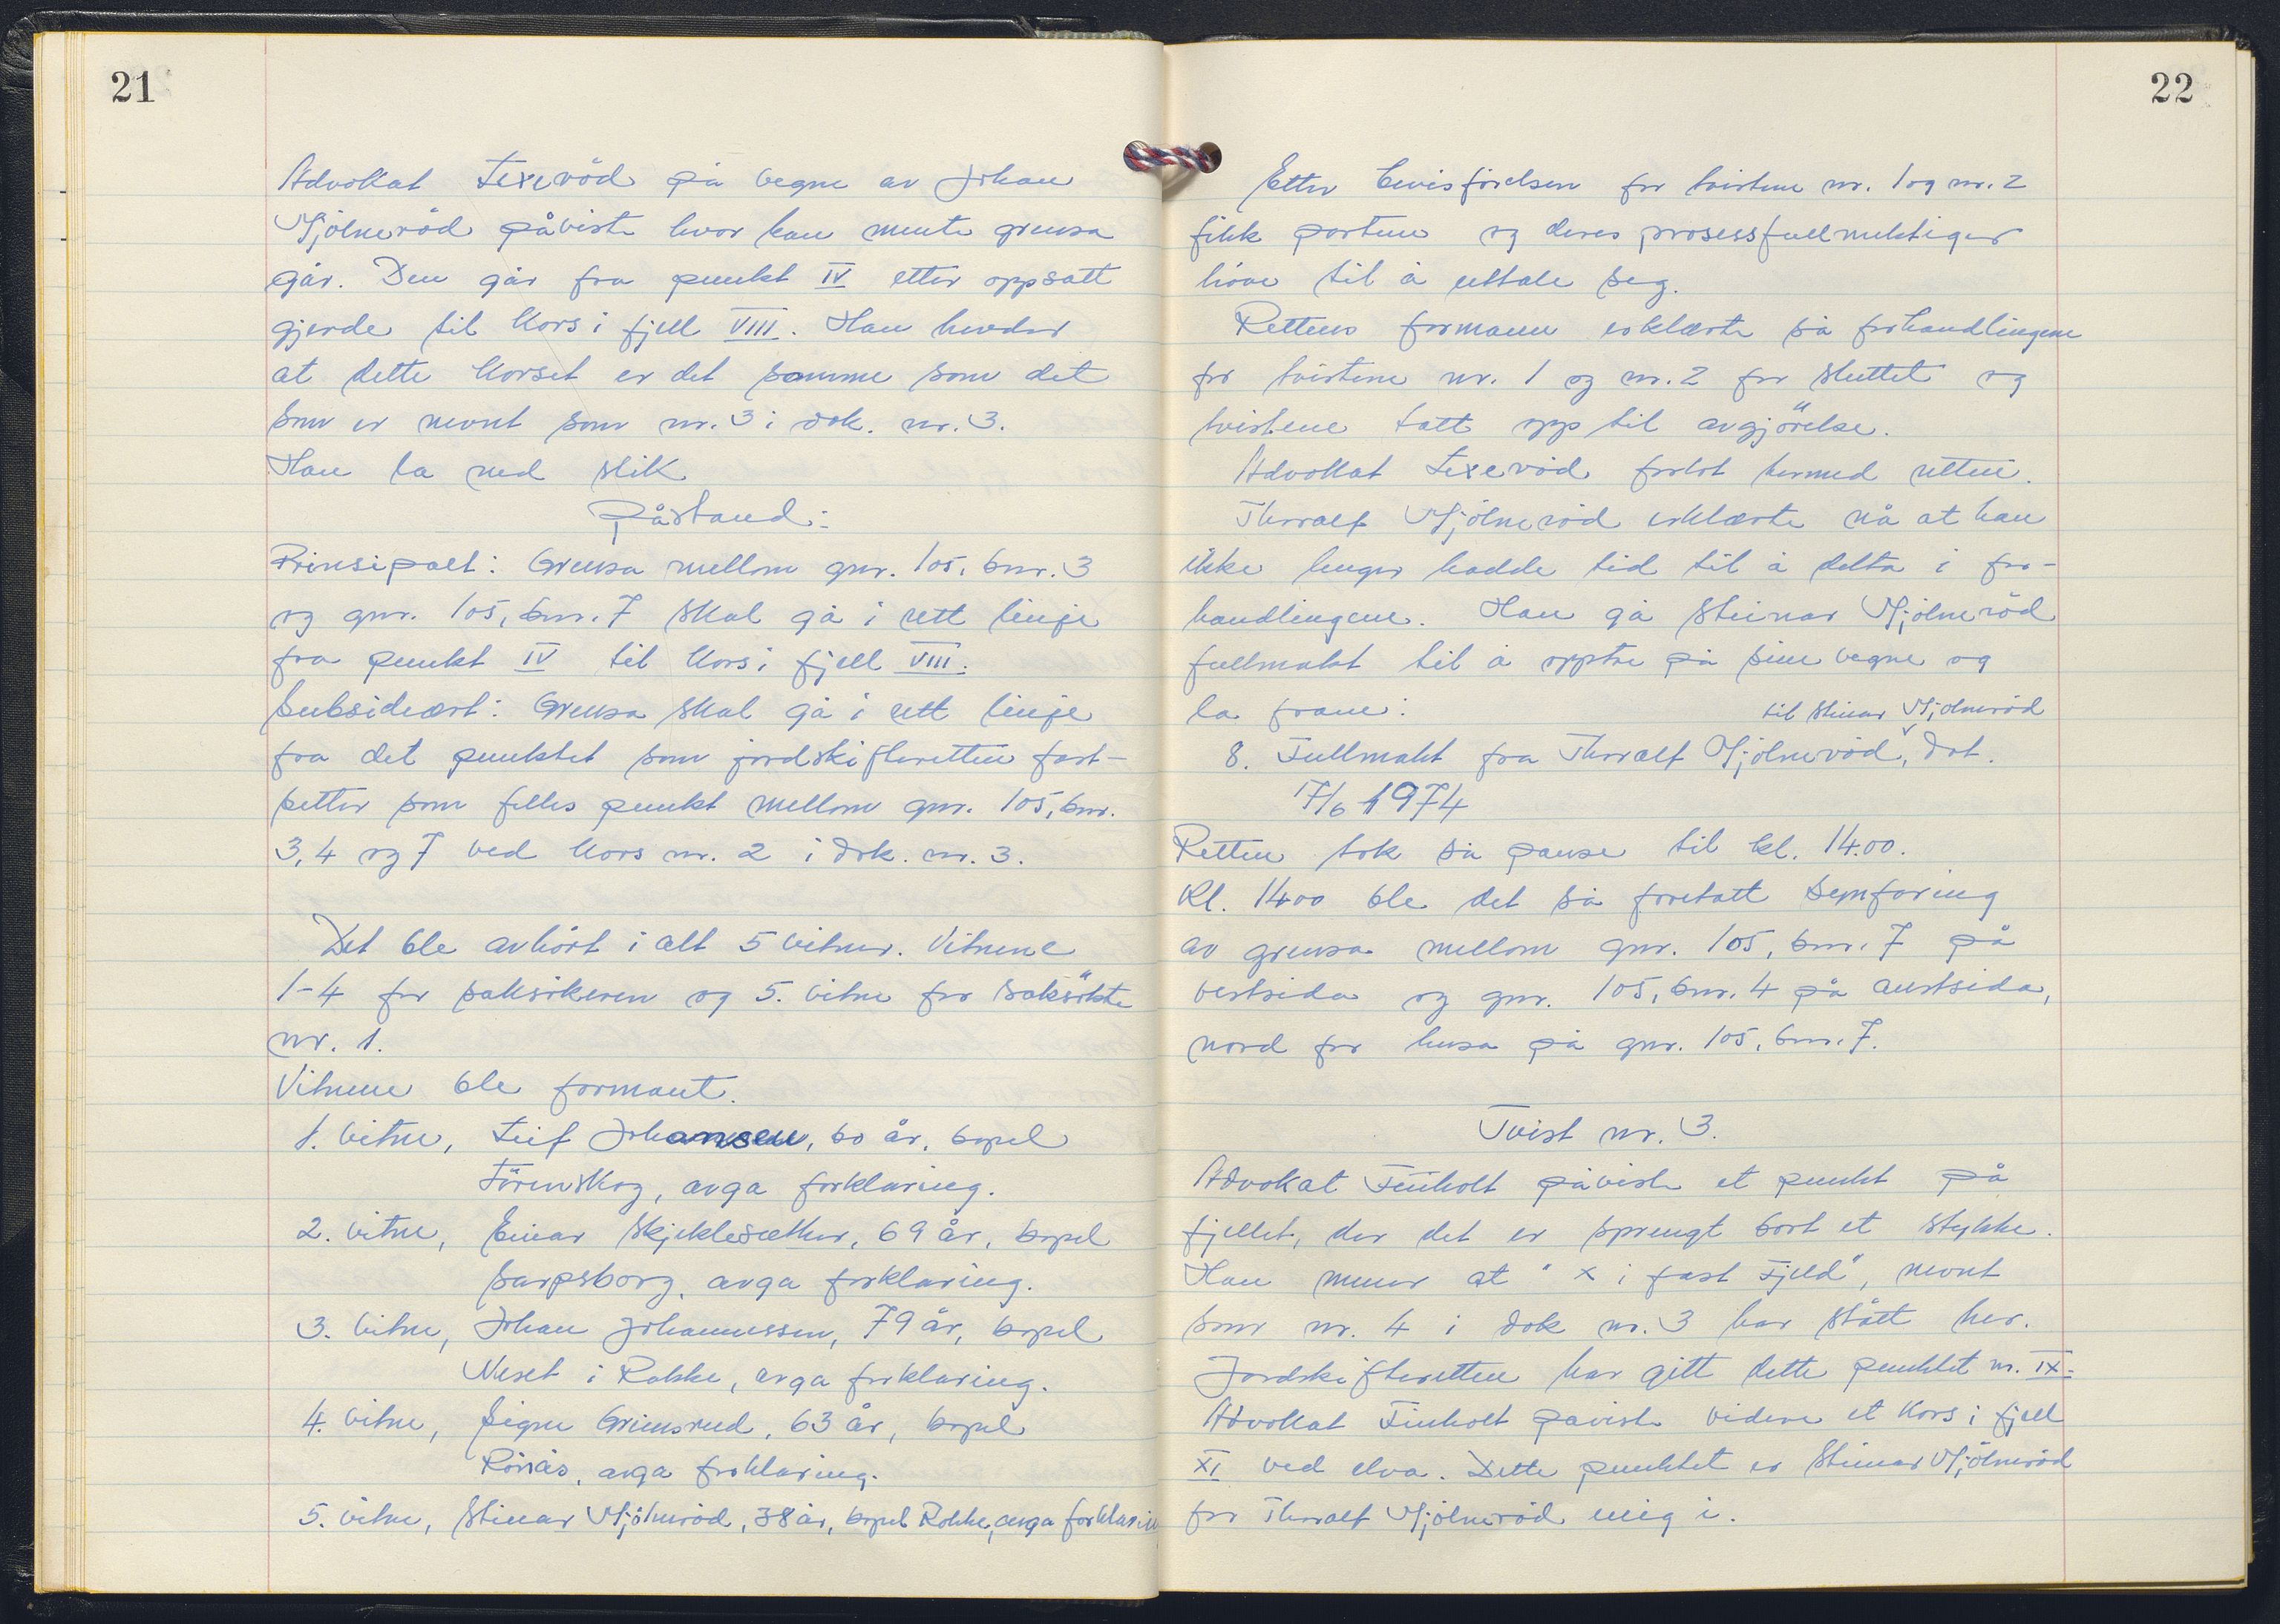 21
Advokat Lexeröd på vegne av Johan
Mjölneröd påviste hvor han mente grensa
går. Den går fra punkt IV etter oppsatt
gjerde til kors i fjell VIII. Han hevder
at dette korset er det samme som det
som er nevnt som nr. 3 i dok. nr. 3.
Han la ned slik
påstand:
Prinsipalt: Grensa mellom gnr. 105, bnr. 3
og gnr. 105, bnr. 7 skal gå i rett linje
fra punkt IV til kors i fjell VIII.
Subsidiært: Grensa skal gå i rett linje
fra det punktet som jordskifteretten fast-
setter som felles punkt mellom gnr. 105, bnr.
3, 4 og 7 ved kors nr. 2 i dok. nr. 3.
Det ble avhört i alt 5 vitner. Vitnene
1-4 for saksökeren og 5. vitne for saksökte
nr. 1.
Vitnene ble formant.
1. vitne, Leif Johansen, 60 år, bopel
Lörenskog, avga forklaring.
2. vitne, Einar Skjeklesæther, 69 år, bopel
Sarpsborg, avga forklaring.
3. vitne, Johan Johannessen, 79 år, bopel
Neset i Rokke, avga forklaring.
4. vitne, Signe Grimsrud, 63 år, bopel
avga forklaring.
5. vitne, Steinar Mjölneröd, 38 år, bopel Rokke, avga forklaring
22
Etter bevisförelsen for tvistene nr. 1 og nr. 2
fikk partene og deres prosessfullmektiger
höve til å uttale seg.
Rettens formann erklærte så forhandlingene
for tvistene nr. 1 og nr. 2 for sluttet og
tvistene tatt opp til avgjörelse.
Advokat Lexeröd forlot hermed retten.
Thoralf Mjölneröd erklærte nå at han
ikke lenger hadde tid til å delta i for-
handlingene. Han ga Steinar Mjölneröd
fullmakt til å opptre på sine vegne og
la fram:
til Steinar Mjölneröd
8. Fullmakt fra Thoralf Mjölneröd, dat.
17/6 1974
Retten tok så pause til kl. 14.00.
Kl. 1400 ble det så foretatt synfaring
av grensa mellom gnr. 105, bnr. 7 på
vestsida og gnr. 105, bnr. 4 på austsida,
nord for husa på gnr. 105, bnr. 7.
Tvist nr. 3.
Advokat Finholt påviste et punkt på
fjellet, der det er sprengt bort et stykke.
Han mener at "x i fast Fjeld", nevnt
som nr. 4 i dok nr. 3 har stått her.
Jordskifteretten har gitt dette punktet nr. IX.
Advokat Finholt påviste videre et kors i fjell
XI ved elva. Dette punktet er Steinar Mjölneröd
for Thoralf Mjölneröd enig i.